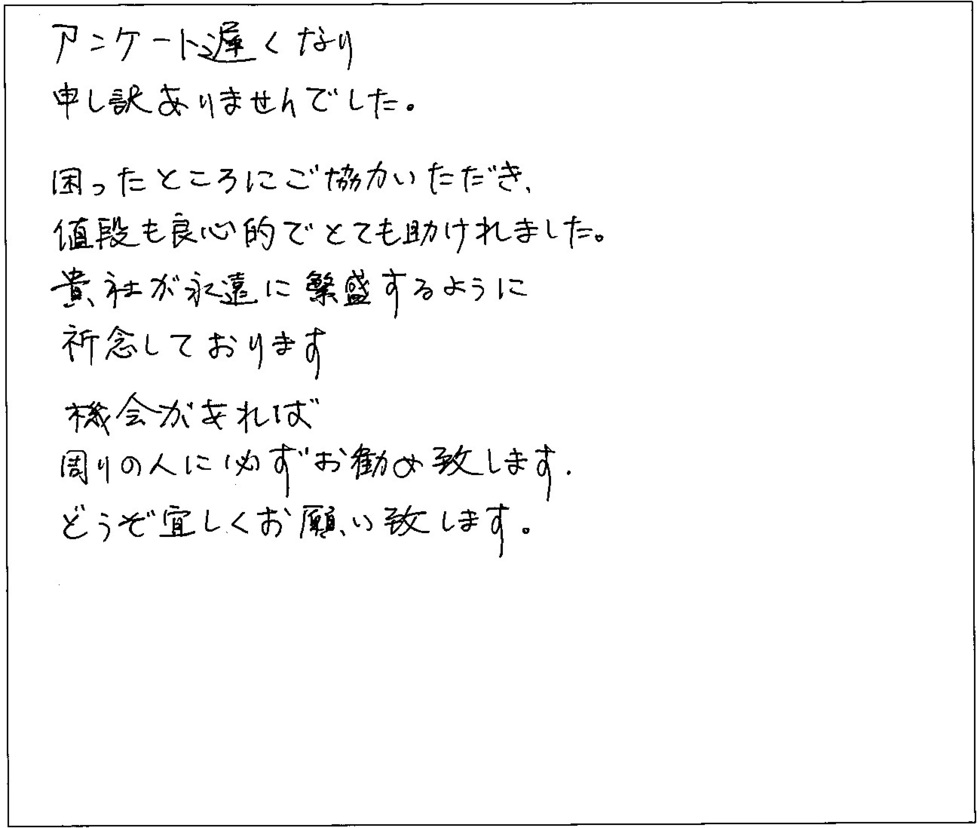 アンケート遅くなり
申し訳ありませんでした。
困ったところにご協力いただき、
値段も良心的でとても助けれました。
貴社が永遠に繁盛するように
祈念しております
機会があれば
周りの人に必ずお勧め致します.
どうぞ宜しくお願い致します。